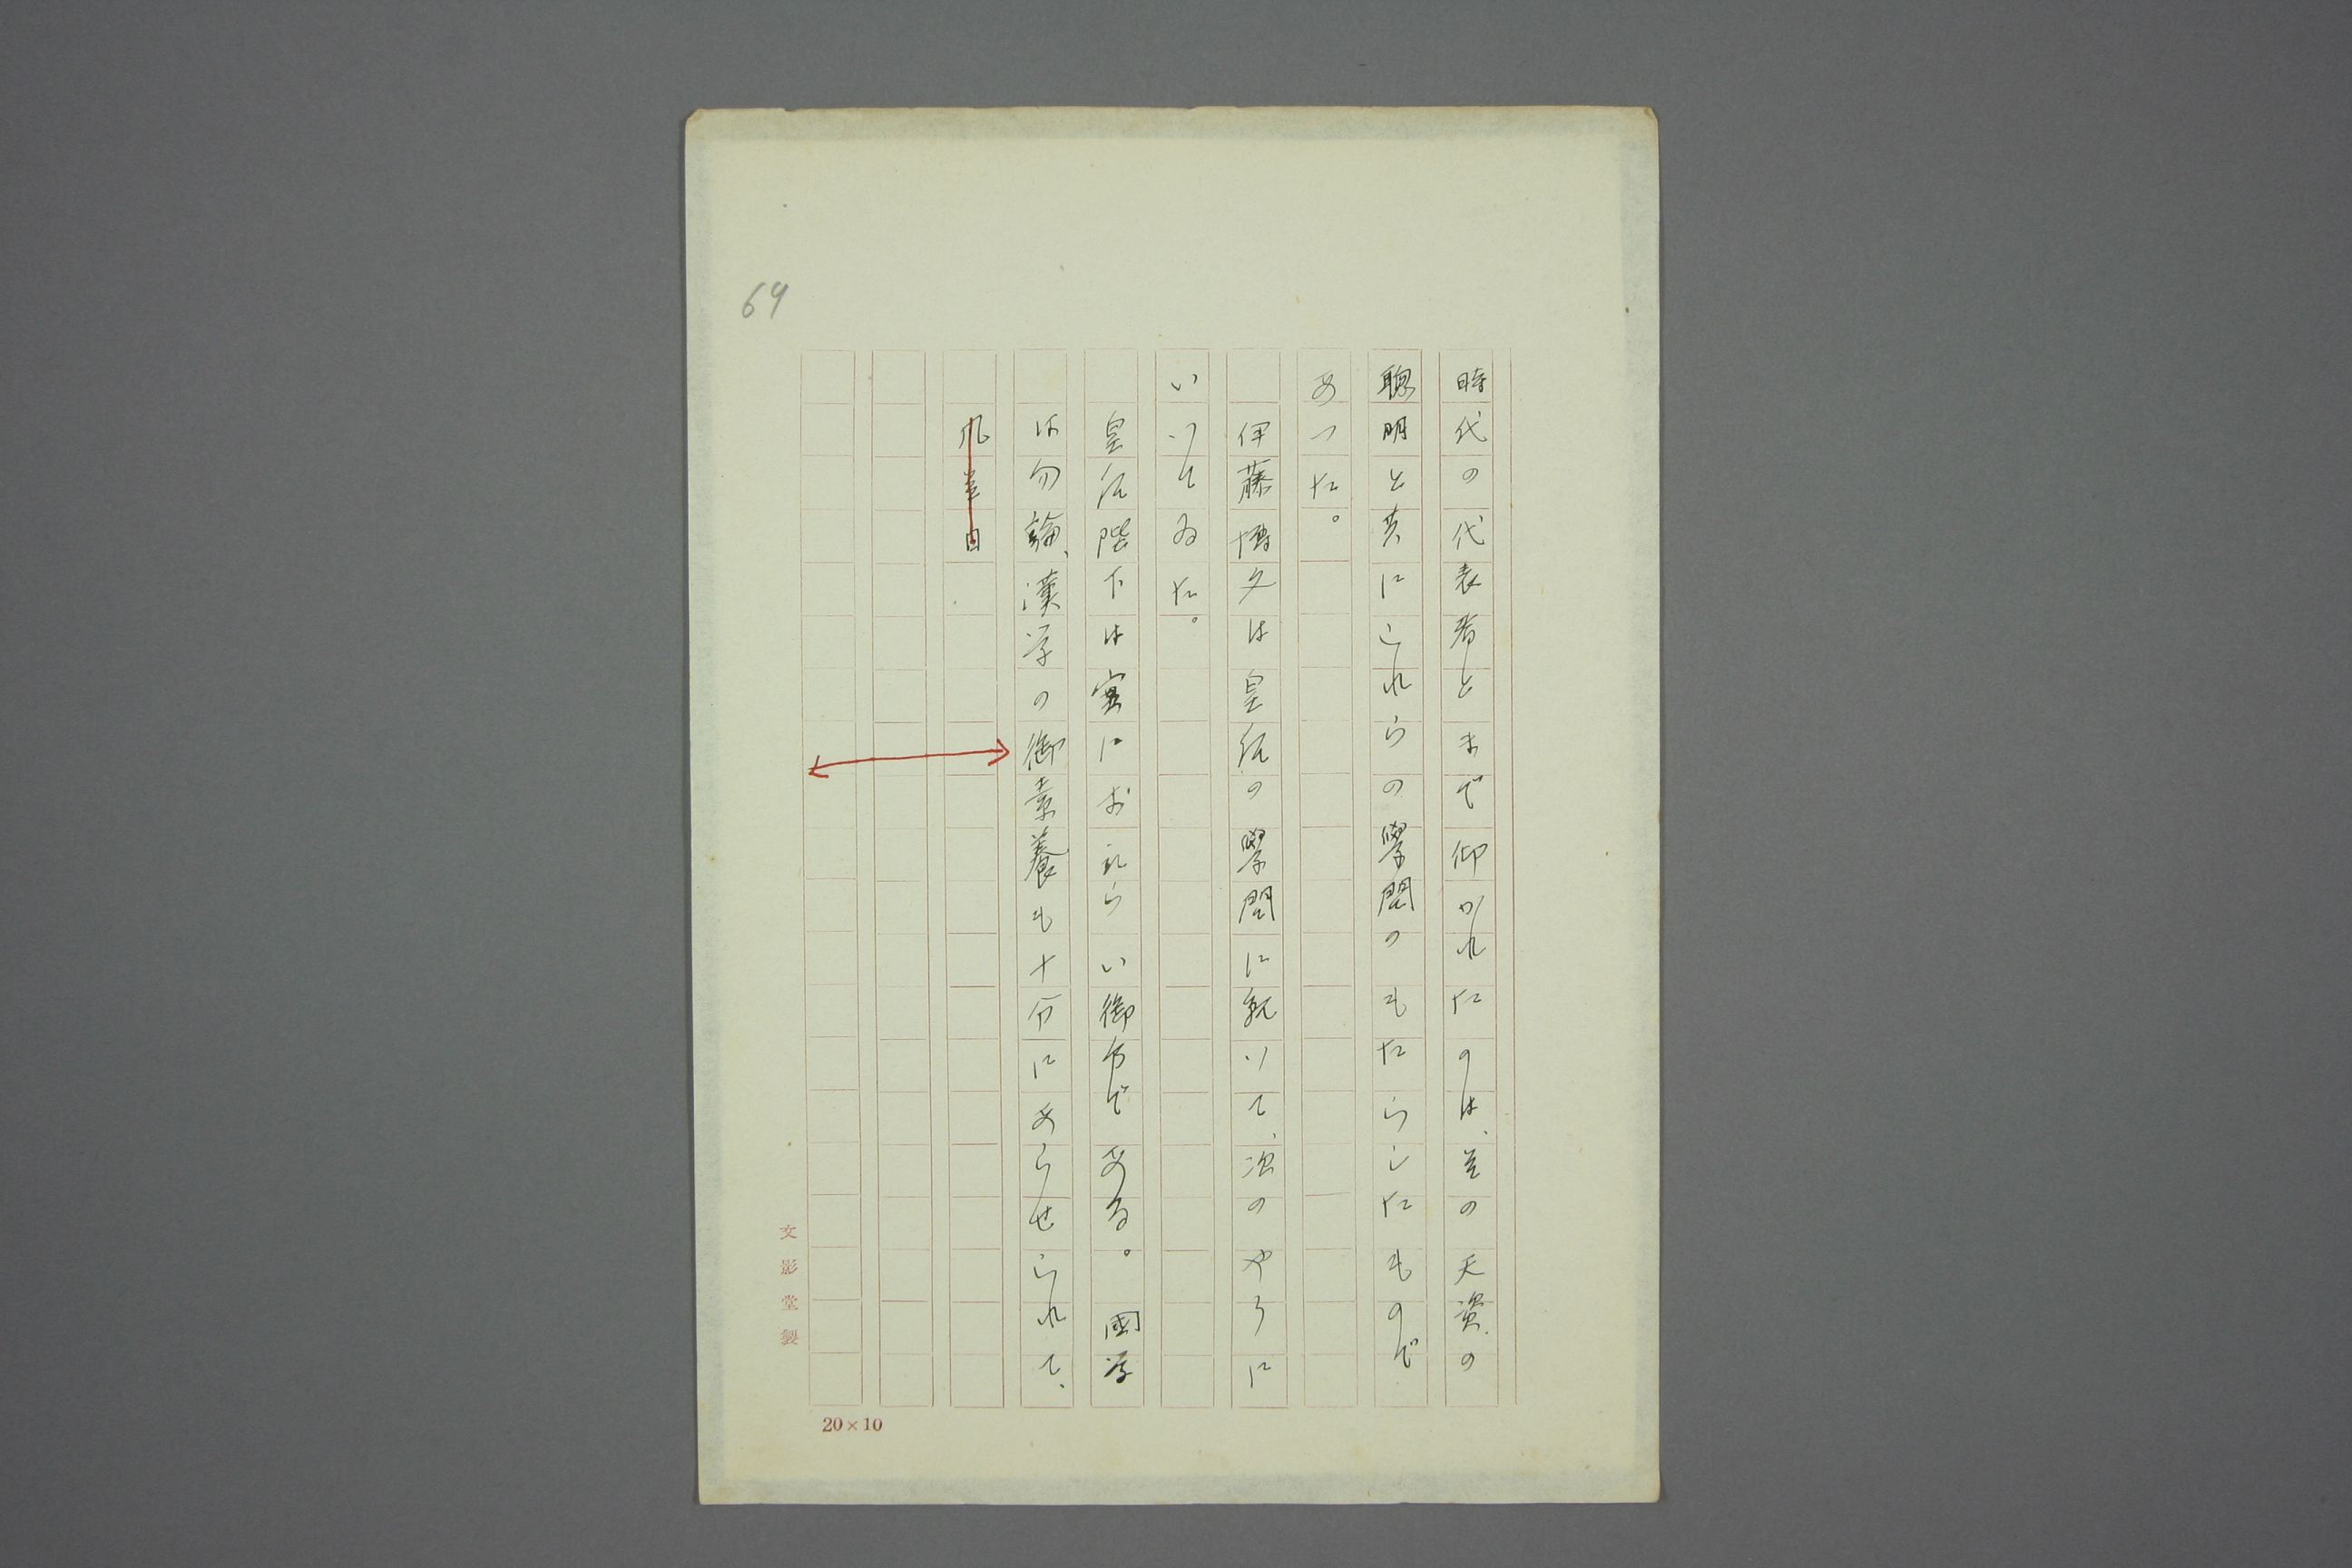 69
時代の代表者とまで仰がれたのは、その天資の
聰明と共にこれらの學問のもたらしたもので
あつた。
伊藤博文は皇后の學問に就いて、次のやうに
いつてゐた。
皇后陛下は実におえらい御方である。国学
は勿論、漢学の御素養も十分にあらせられて、
文影堂製
20×10